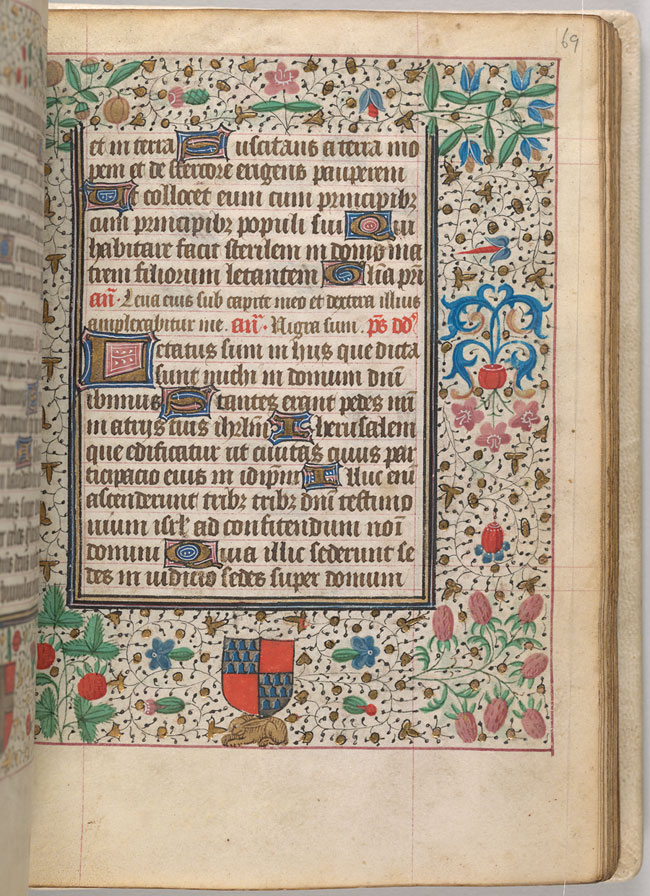 69
et in terra Suscitans a terra ino
pem et de stercore erigens pauperem
Ut collocēt eum cum principibꝫ
cum principibꝫ populi sui Qui
habitare facit sterilem in domo ma
trem filiorum letantem Gl̄ia pri
an̄ · Leua eius sub capite meo et dextera illius
amplexabitur me. an̄ · Nigra sum. p̄s dd̄
Letatus sum in hiis que dicta
sunt michi in domum dn̄i
ibimus Stantes erant pedes nr̄i
in atrijs tuis ihrl̄m Iherusalem
que edificatur vt ciuitas cuius par
ticipacio eius in idip̄m Illuc eni̅
ascenderunt tribꝫ tribꝫ dn̄i testimo
nium isrl̄ ad confitendum noi̅
domini Quia illic sederunt se
des in iudicio sedes super domum